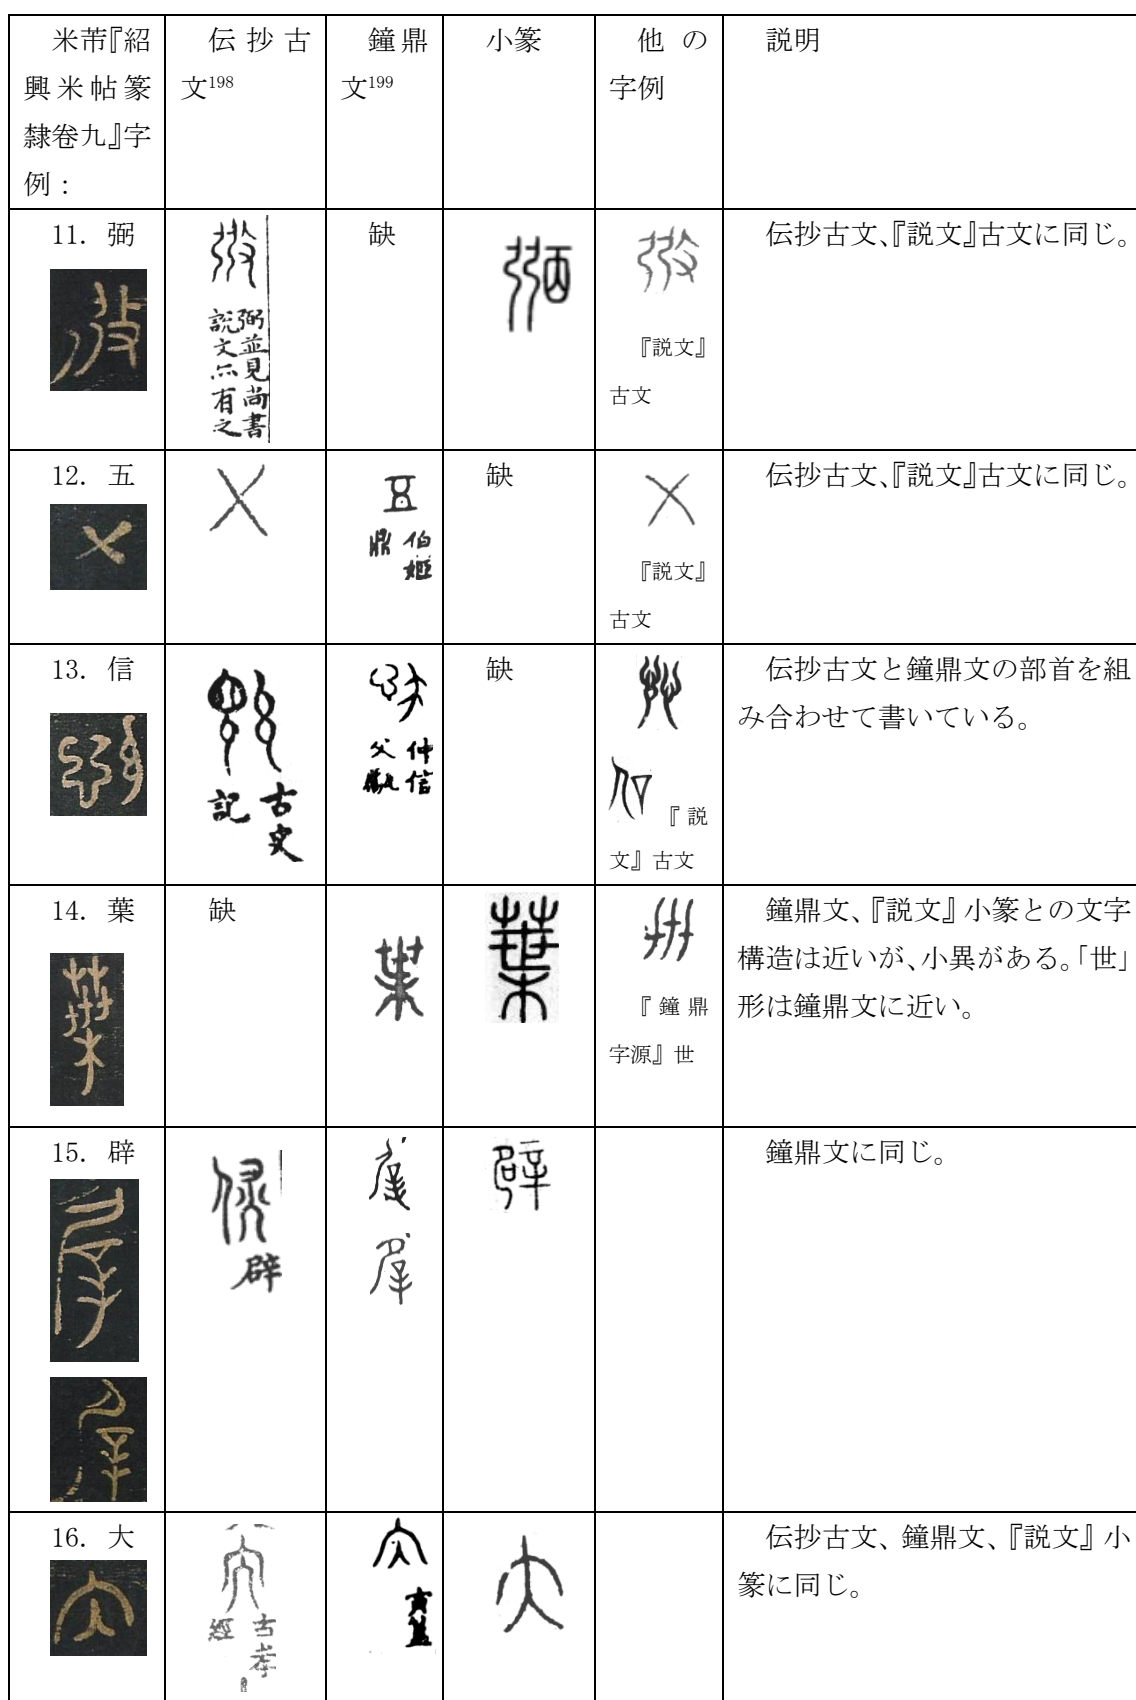 米芾『紹興米帖篆隸卷九』字例：
伝抄古文198
鐘鼎文199
小篆
他の字例
説明
11. 弼
弼並見尚書
説文亦有之
缺
『説文』
古文
伝抄古文、『説文』古文に同じ。
12. 五
伯姬
鼎
缺
『説文』
古文
伝抄古文、『説文』古文に同じ。
13. 信
古史
記
仲信
父甗
缺
『説
文』古文
伝抄古文と鐘鼎文の部首を組
み合わせて書いている。
14. 葉
缺
『鐘鼎
字源』世
鐘鼎文、『説文』小篆との文字
構造は近いが、小異がある。「世」
形は鐘鼎文に近い。
15. 辟
辟
鐘鼎文に同じ。
16. 大
古孝
經
伝抄古文、鐘鼎文、『説文』小
篆に同じ。